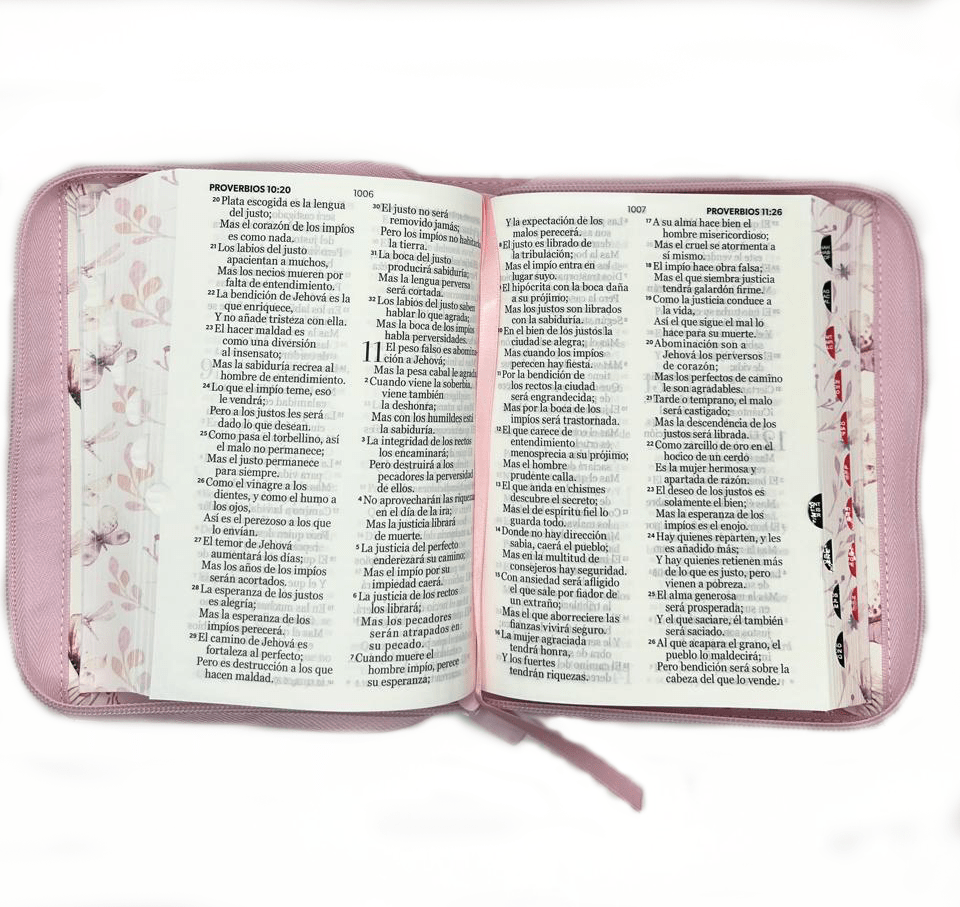 PROVERBIOS 10:20
1006
20 Plata escogida es la lengua
del justo;
Mas el corazón de los impíos
es como nada.
21 Los labios del justo
apacientan a muchos,
Mas los necios mueren por
falta de entendimiento.
22 La bendición de Jehová es la
que enriquece,
Y no añade tristeza con ella.
23 El hacer maldad es
como una diversión
al insensato;
Mas la sabiduría recrea al
hombre de entendimiento.
24 Lo que el impío teme, eso
le vendrá;
Pero a los justos les será
dado lo que desean.
25 Como pasa el torbellino, así
el malo no permanece;
Mas el justo permanece
para siempre.
26 Como el vinagre a los
dientes, y como el humo a
los ojos,
Así es el perezoso a los que
lo envían.
27 El temor de Jehová
aumentará los días;
Mas los años de los impíos
serán acortados.
28 La esperanza de los justos
es alegría;
Mas la esperanza de los
impíos perecerá.
29 El camino de Jehová es
fortaleza al perfecto;
Pero es destrucción a los que
hacen maldad.
30 El justo no será
removido jamás;
Pero los impíos no habitarán
la tierra.
31 La boca del justo
producirá sabiduría;
Mas la lengua perversa
será cortada.
32 Los labios del justo saben
hablar lo que agrada;
Mas la boca de los impíos
habla perversidades.
11 El peso falso es abomina-
ción a Jehová;
Mas la pesa cabal le agrada.
2 Cuando viene la soberbia,
viene también
la deshonra;
Mas con los humildes está
la sabiduría.
3 La integridad de los rectos
los encaminará;
Pero destruirá a los
pecadores la perversidad
de ellos.
4 No aprovecharán las riquezas
en el día de la ira;
Mas la justicia librará
de muerte.
5 La justicia del perfecto
enderezará su camino;
Mas el impío por su
impiedad caerá.
6 La justicia de los rectos
los librará;
Mas los pecadores
serán atrapados en
su pecado.
7 Cuando muere el
hombre impío, perece
su esperanza;
1007
PROVERBIOS 11:26
Y la expectación de los
malos perecerá.
8 El justo es librado de
la tribulación;
Mas el impío entra en
lugar suyo.
9 El hipócrita con la boca daña
a su prójimo;
Mas los justos son librados
con la sabiduría.
10 En el bien de los justos la
ciudad se alegra;
Mas cuando los impíos
perecen hay fiesta.
11 Por la bendición de
los rectos la ciudad
será engrandecida;
Mas por la boca de los
impíos será trastornada.
12 El que carece de
entendimiento
menosprecia a su prójimo;
Mas el hombre
prudente calla.
13 El que anda en chismes
descubre el secreto;
Mas el de espíritu fiel lo
guarda todo.
14 Donde no hay dirección
sabia, caerá el pueblo;
Mas en la multitud de
consejeros hay seguridad.
15 Con ansiedad será afligido
el que sale por fiador de
un extraño;
Mas el que aborreciere las
fianzas vivirá seguro.
16 La mujer agraciada
tendrá honra,
Y los fuertes
tendrán riquezas.
17 A su alma hace bien el
hombre misericordioso;
Mas el cruel se atormenta a
sí mismo.
18 El impío hace obra falsa;
Mas el que siembra justicia
tendrá galardón firme.
19 Como la justicia conduce a
la vida,
Así el que sigue el mal lo
hace para su muerte.
20 Abominación son a
Jehová los perversos
de corazón;
Mas los perfectos de camino
le son agradables.
21 Tarde o temprano, el malo
será castigado;
Mas la descendencia de los
justos será librada.
22 Como zarcillo de oro en el
hocico de un cerdo
Es la mujer hermosa y
apartada de razón.
23 El deseo de los justos es
solamente el bien;
Mas la esperanza de los
impíos es el enojo.
24 Hay quienes reparten, y les
es añadido más;
Y hay quienes retienen más
de lo que es justo, pero
vienen a pobreza.
25 El alma generosa
será prosperada;
Y el que saciare, él también
será saciado.
26 Al que acapara el grano, el
pueblo lo maldecirá;
Pero bendición será sobre la
cabeza del que lo vende.